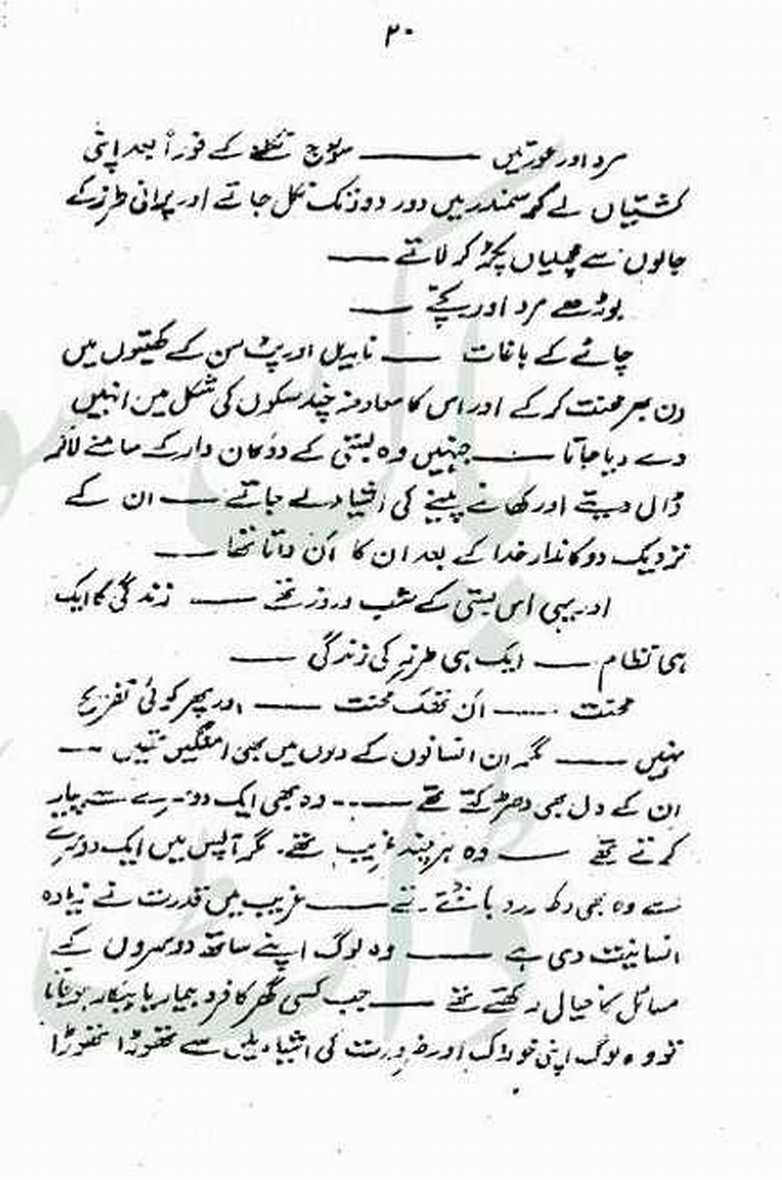 ۲۰
مرد اور عورتیں ــــــ سورج نکلنے کے فوراً بعد اپنی
کشتیاں لے کر سمندر میں دور دور تک نکل جاتے اور پرانی طرز کے
جالوں سے مچھلیاں پکڑ کر لاتے ـــ
بوڑھے مرد اور بچے ـــ
چائے کے باغات ـــ ناریل اور پٹ سن کے کھیتوں میں
دن بھر محنت کر کے اور اس کا معاوضہ چند سکوں کی شکل میں انہیں
دے دیا جاتا ـــ جنہیں وہ بستی کے دوکان دار کے سامنے لا کر
ڈال دیتے اور کھانے پینے کی اشیاء لے جاتے ـــ ان کے
نزدیک دوکاندار خدا کے بعد ان کا ان داتا تھا ـــ
اور یہی اس بستی کے شب و روز تھے ـــ زندگی کا ایک
ہی نظام ـــ ایک ہی طرز کی زندگی ـــ
محنت ـــ ان تھک محنت ـــ اور پھر کوئی تفریح
نہیں ـــ مگر ان انسانوں کے دلوں میں بھی امنگیں تھیں ـــ
ان کے دل بھی دھڑکتے تھے ـــ وہ بھی ایک دوسرے سے پیار
کرتے تھے ـــ وہ ہر چند غریب تھے۔ مگر آپس میں ایک دوسرے
سے وہ بھی دکھ درد بانٹتے تھے ـــ غریب میں قدرت نے زیادہ
انسانیت دی ہے ـــ وہ لوگ اپنے ساتھ دوسروں کے
مسائل کا خیال رکھتے تھے ـــ جب کسی گھر کا فرد بیمار یا بیکار ہو جاتا
تو وہ لوگ اپنی خوراک اور ضرورت کی اشیاء میں سے تھوڑا تھوڑا